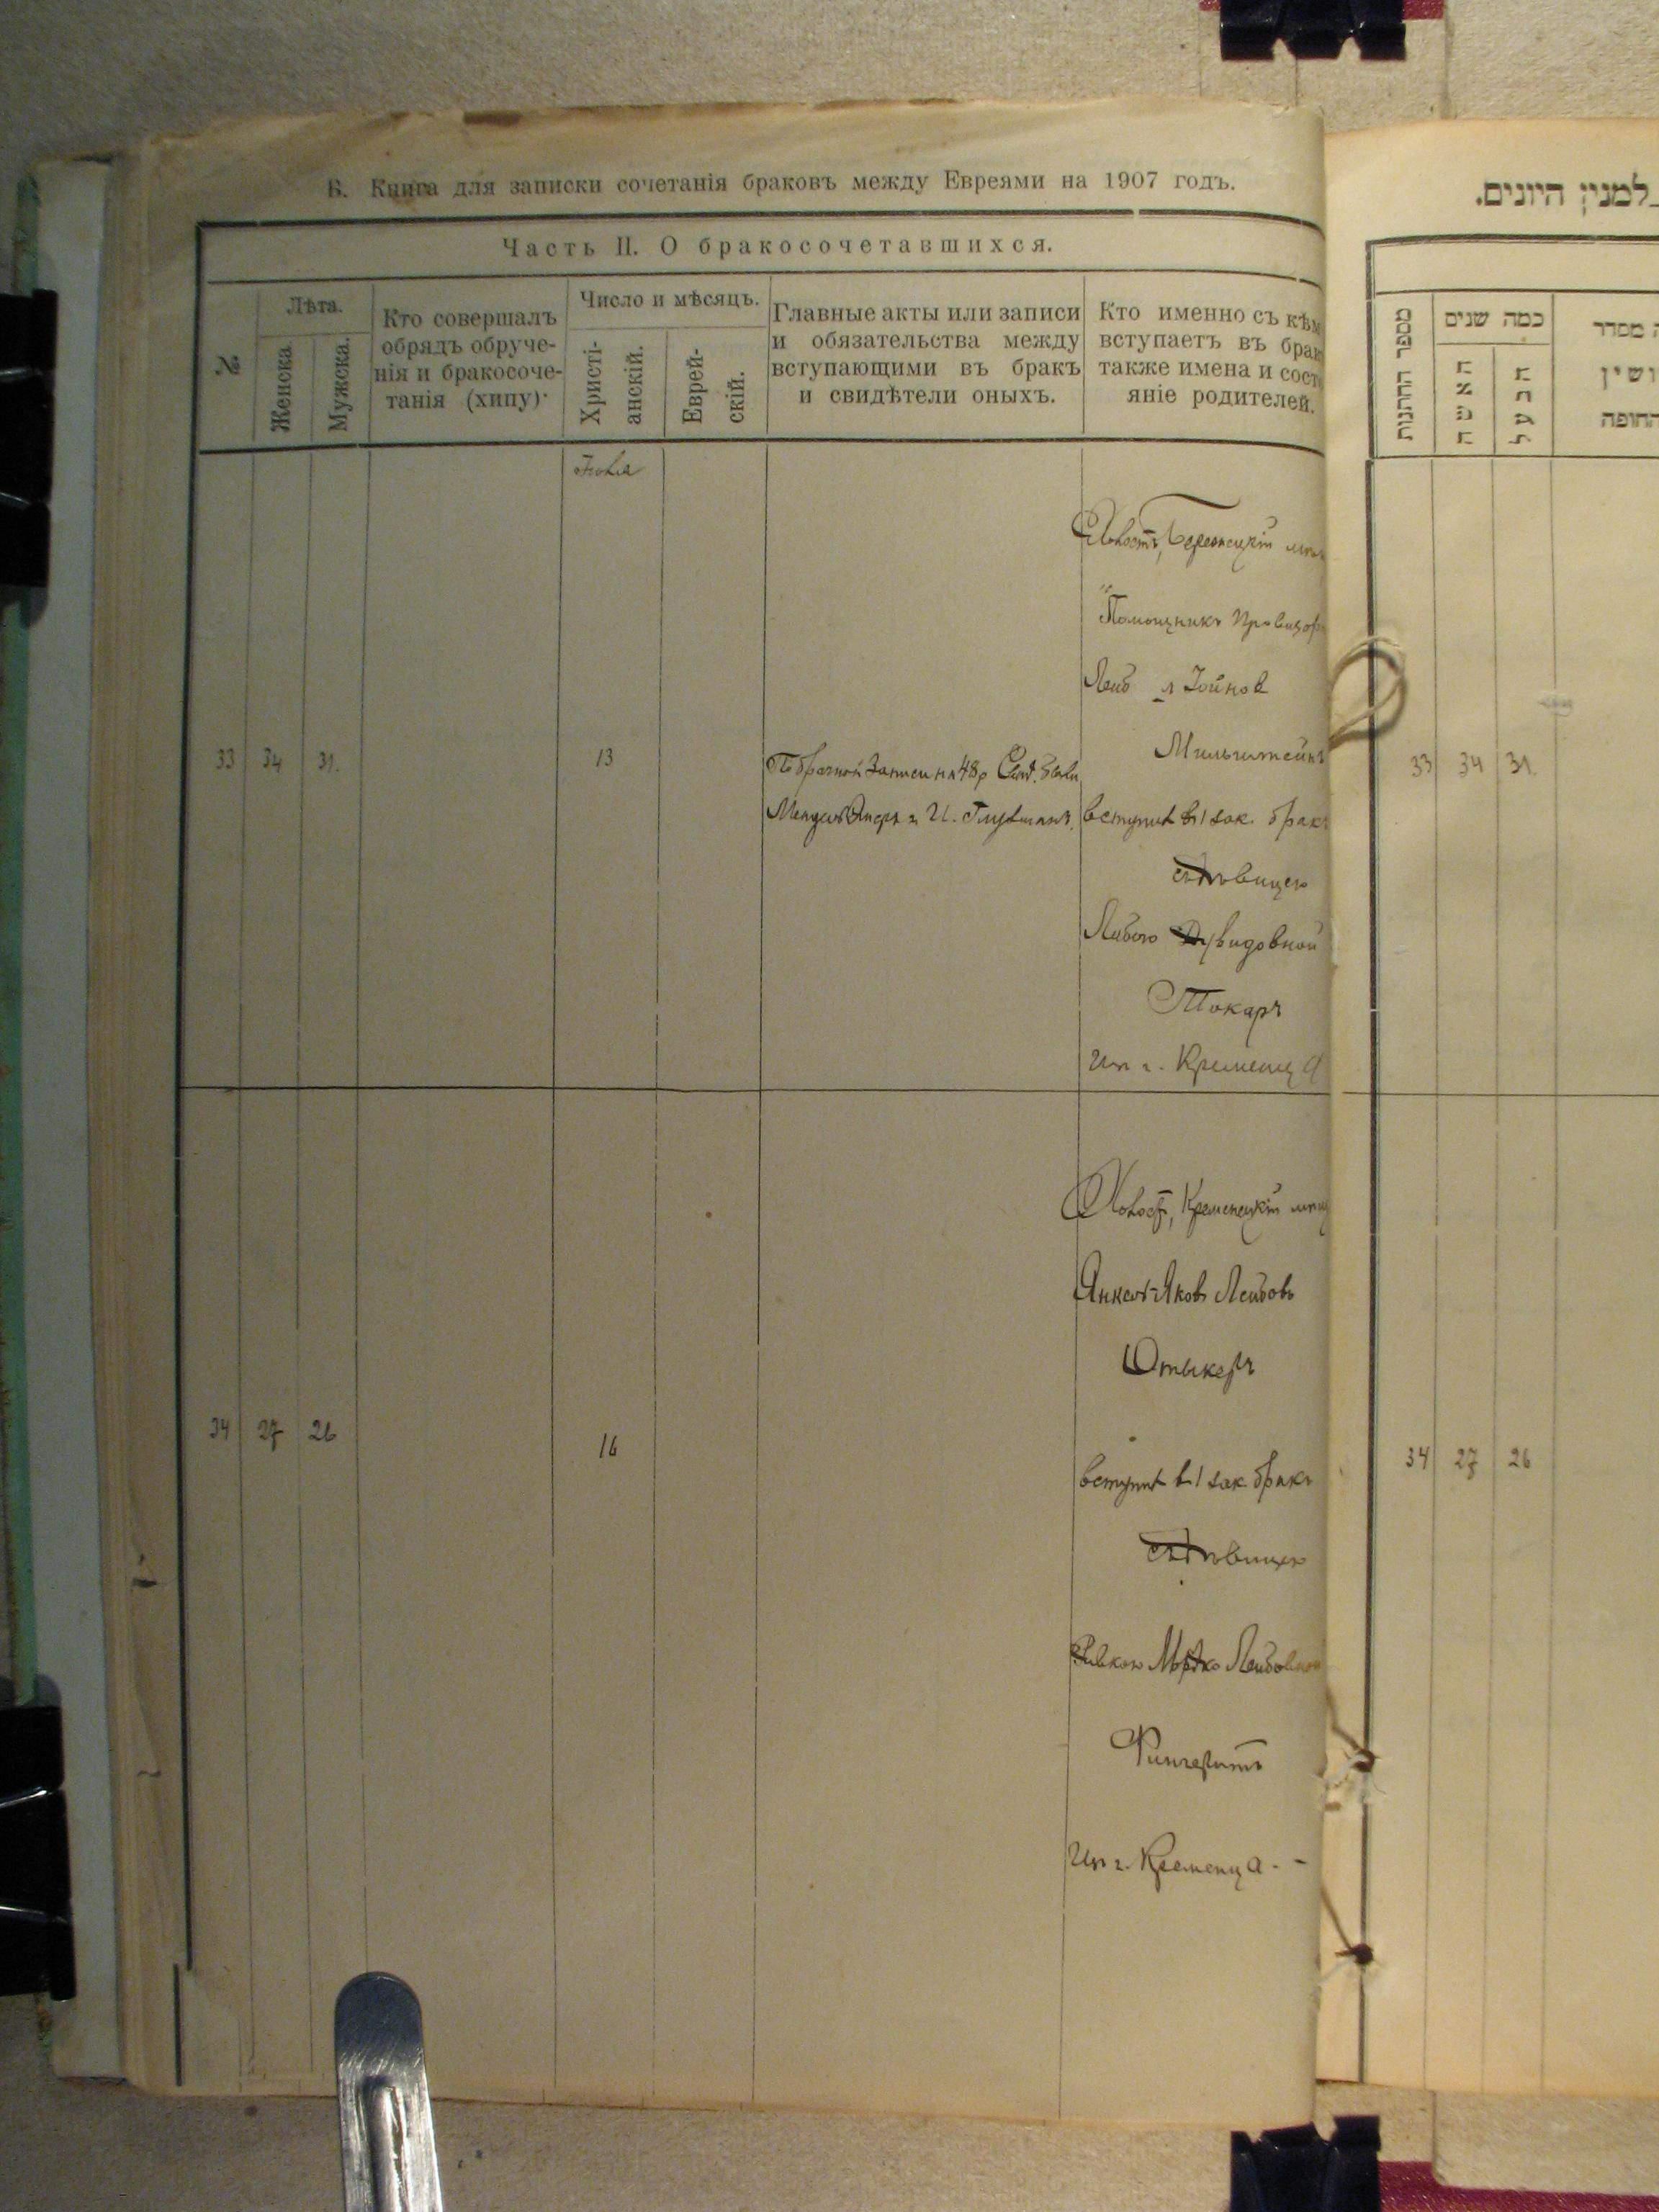 В. Книга для записки сочетанія браковъ между Евреями на 1907 годъ.
Часть II. О бракосочетавшихся.
№
Лѣта.
Женска.
Мужска.
Кто совершалъ
обрядъ обруче-
нія и бракосоче-
танія (хипу).
Число и мѣсяцъ.
Христі-
анскій.
Еврей-
скій.
Главные акты или записи
и обязательства между
вступающими въ бракъ
и свидѣтели оныхъ.
Кто именно съ кѣм
вступаетъ въ брак
также имена и сост
яніе родителей.
33 34 31. 13
Холост,
Помощникъ Провизор
Лейб Іойнов
Мильштейнъ
вступил в 1 зак. бракъ
съ дѣвицею
Либою Дувидовной
Токаръ
Из г. Кременца
34 27 26 16
Холост, Кременецкій мѣщ
Янкель-Яковъ Лейбовъ
вступил в 1 зак. бракъ
съ дѣвицею
Ривкою Лейбовной
Фингерутъ
Из г. Кременца. -
למנין היונים.
מספר החתנות
כמה שנים
האשה
הבעל
מסדר
החופה
33 34 31.
34 27 26